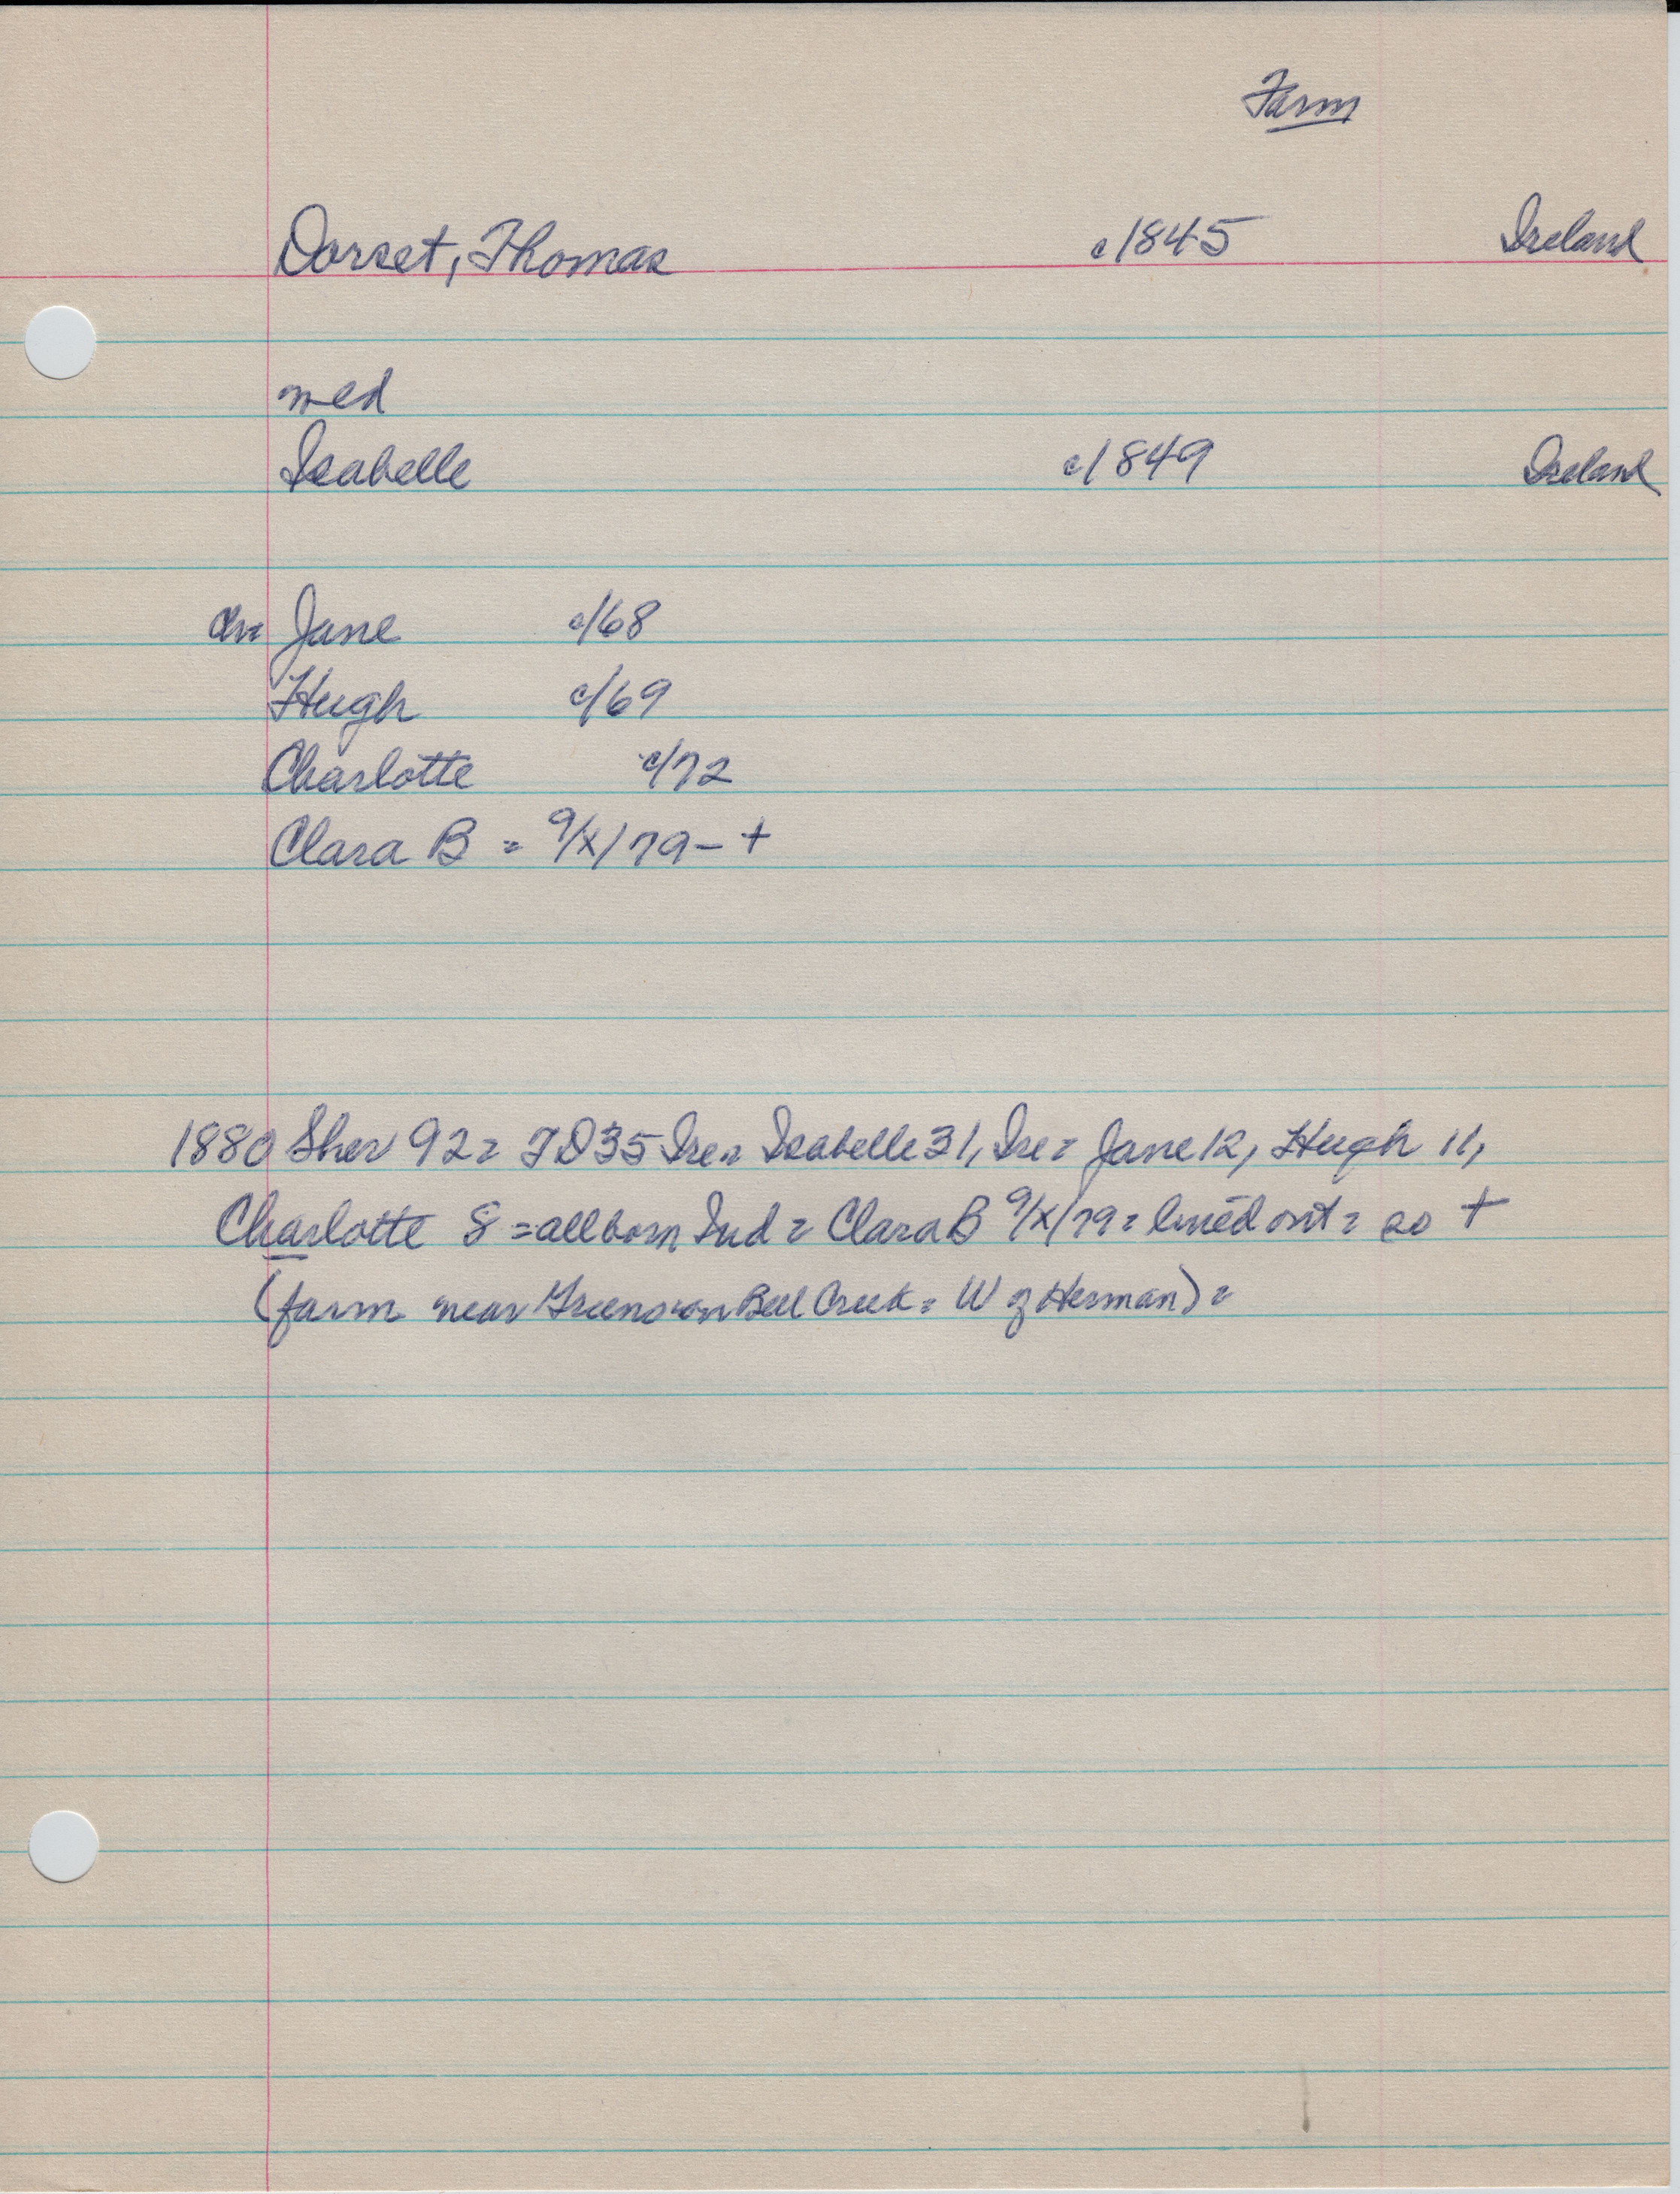 Farm
Dorset, Thomas c1845 Ireland
med
Isabelle c1849 Ireland
ch= Jane c/68
Hugh c/69
Charlotte c/72
Clara B = 9/x/79 - +
1880 Sher 92 = TD 35 Ire = Isabelle 31, Ire = Jane 12, Hugh 11,
Charlotte 8 = all born Ind = Clara B 9/x/79 = lined out = so +
(farm near Greens on Bell Creek = W of Herman) =